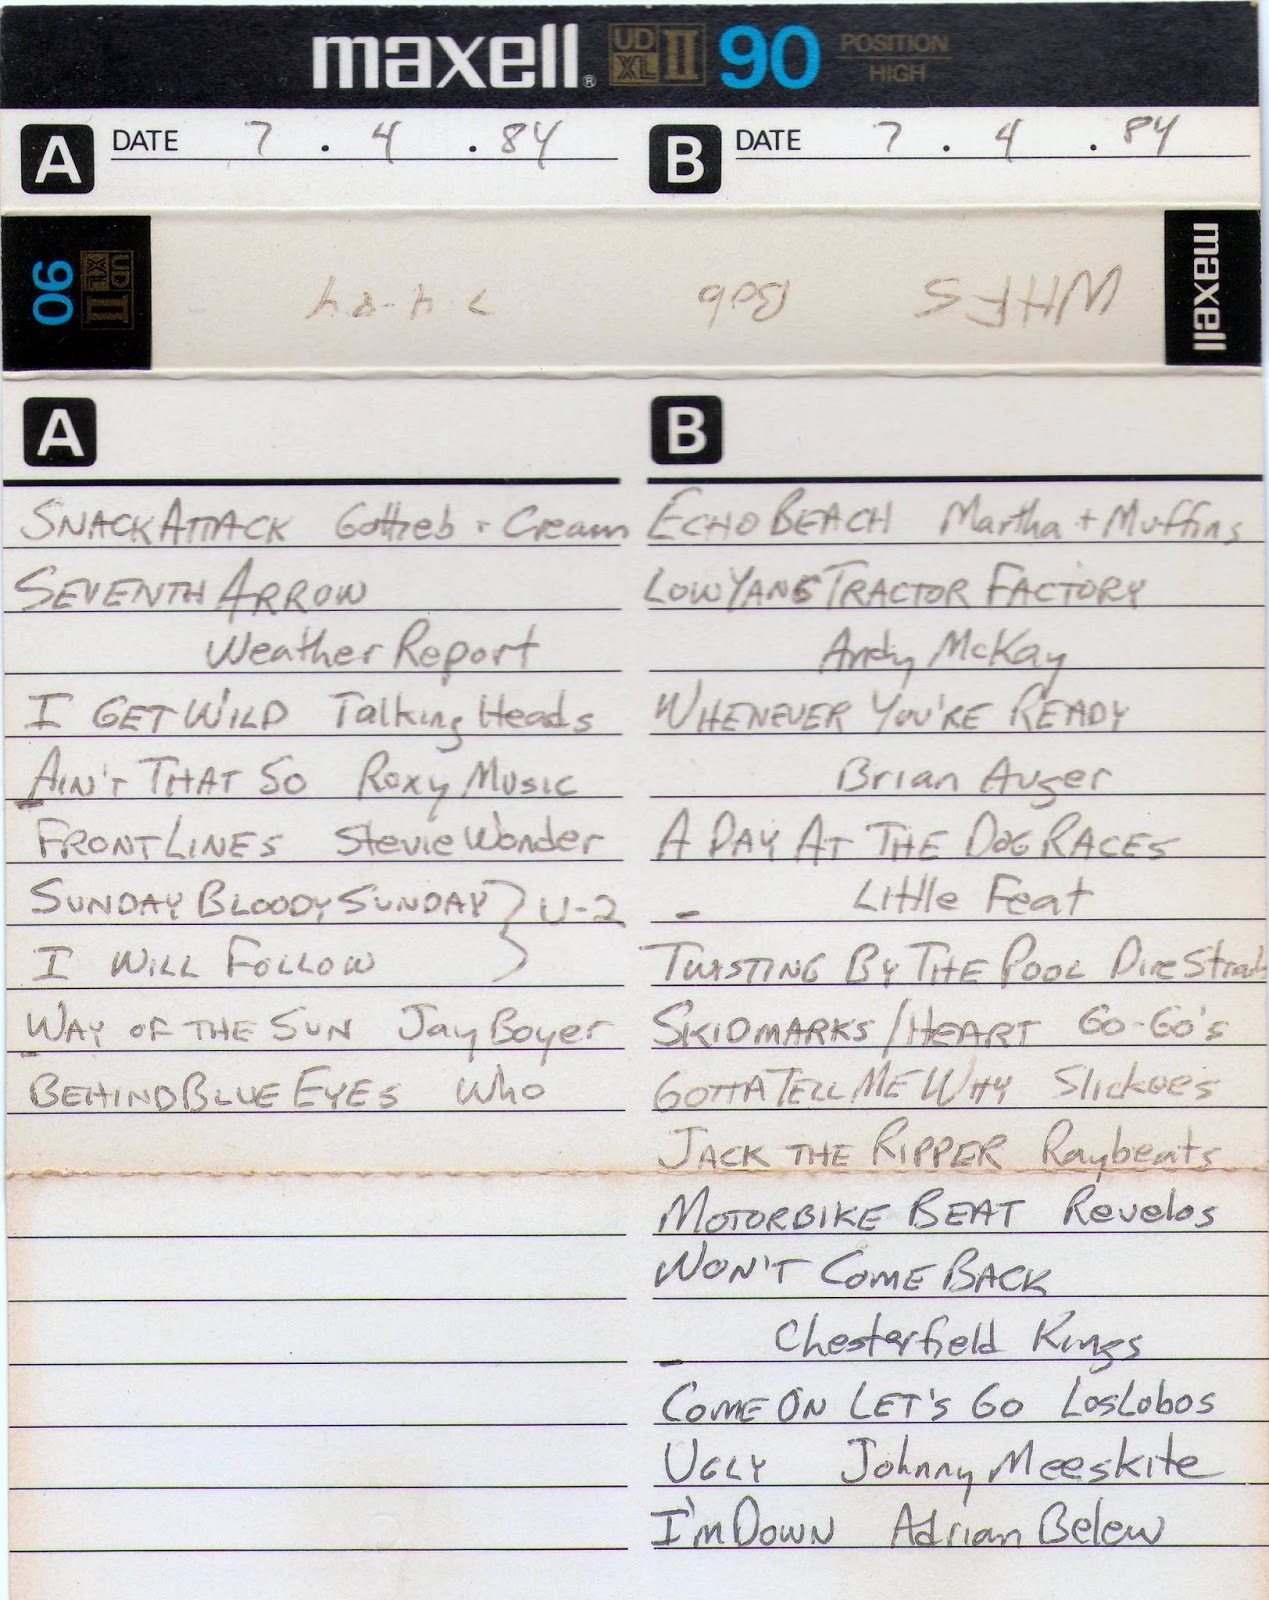 maxell® UD XL II 90 POSITION HIGH
A DATE 7 . 4 . 84
B DATE 7 . 4 . 84
90 UD XL II
7-4-84 Bob WHFS
maxell
A
SNACK ATTACK Gottleb + Cream
SEVENTH ARROW
Weather Report
I GET WILD Talking Heads
AIN'T THAT SO Roxy Music
FRONT LINES Stevie Wonder
SUNDAY BLOODY SUNDAY } U-2
I WILL FOLLOW
WAY OF THE SUN Jay Boyer
BEHIND BLUE EYES Who
B
ECHO BEACH Martha + Muffins
LOW YANG TRACTOR FACTORY
Andy McKay
WHENEVER YOU'RE READY
Brian Auger
A DAY AT THE DOG RACES
- Little Feat
TWISTING BY THE POOL Dire Straits
SKIDMARKS/HEART GO-GO'S
GOTTA TELL ME WHY Slickees
JACK THE RIPPER Raybeats
MOTORBIKE BEAT Revelos
WON'T COME BACK
Chesterfield Kings
COME ON LET'S GO Los Lobos
UGLY Johnny Meeskite
I'M DOWN Adrian Belew